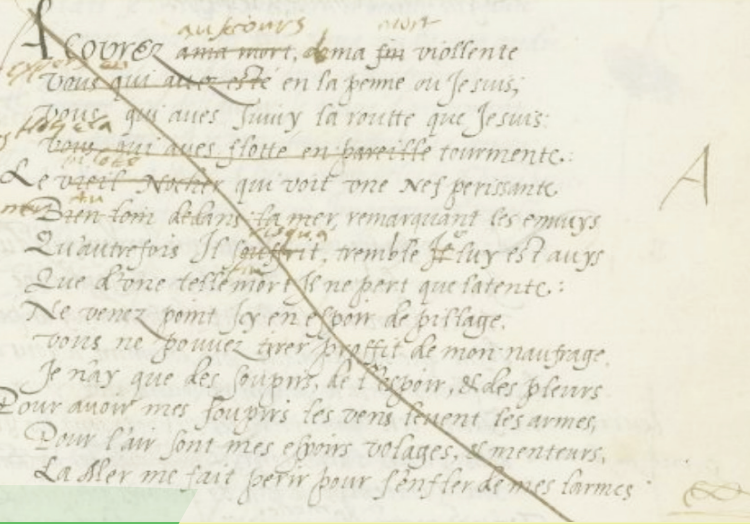 au secours mort
Acourez a ma mort, de ma fin viollente
Vous qui avez esté en la penne ou Je suis;
Vous, qui aves suivy la routte que Je suis:
Vous qui aves flotté en pareille tourmente:
pilote
Le vieil Nocher qui voit une Nef perissante
Bien loin dedans la mer, remarquant les ennuys
risqua
Qu'autrefois Il souffrit, tremble Je luy est avys
Que d'une telle mort Il ne pert que l'atente:
Ne venez point Icy en espoir de pillage,
Vous ne pouvez tirer proffit de mon naufrage,
Je n'ay que des soupirs, de l'espoir, & des pleurs
Pour avoir mes soupirs les vens levent les armes,
Pour l'air sont mes espoirs volages, & menteurs,
La Mer me fait perir pour s'enfler de mes larmes
A